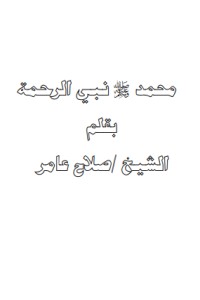 محمد ﷺ نبي الرحمة
بقلم
الشيخ /صلاح عامر